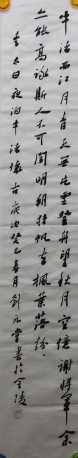 牛渚西江月青天無片雲登舟望秋月空憶謝將軍余
亦能高詠斯人不可聞明朝挂帆去楓葉落紛
李太白夜泊牛渚懷古歲次癸巳春月劉元堂書於金陵